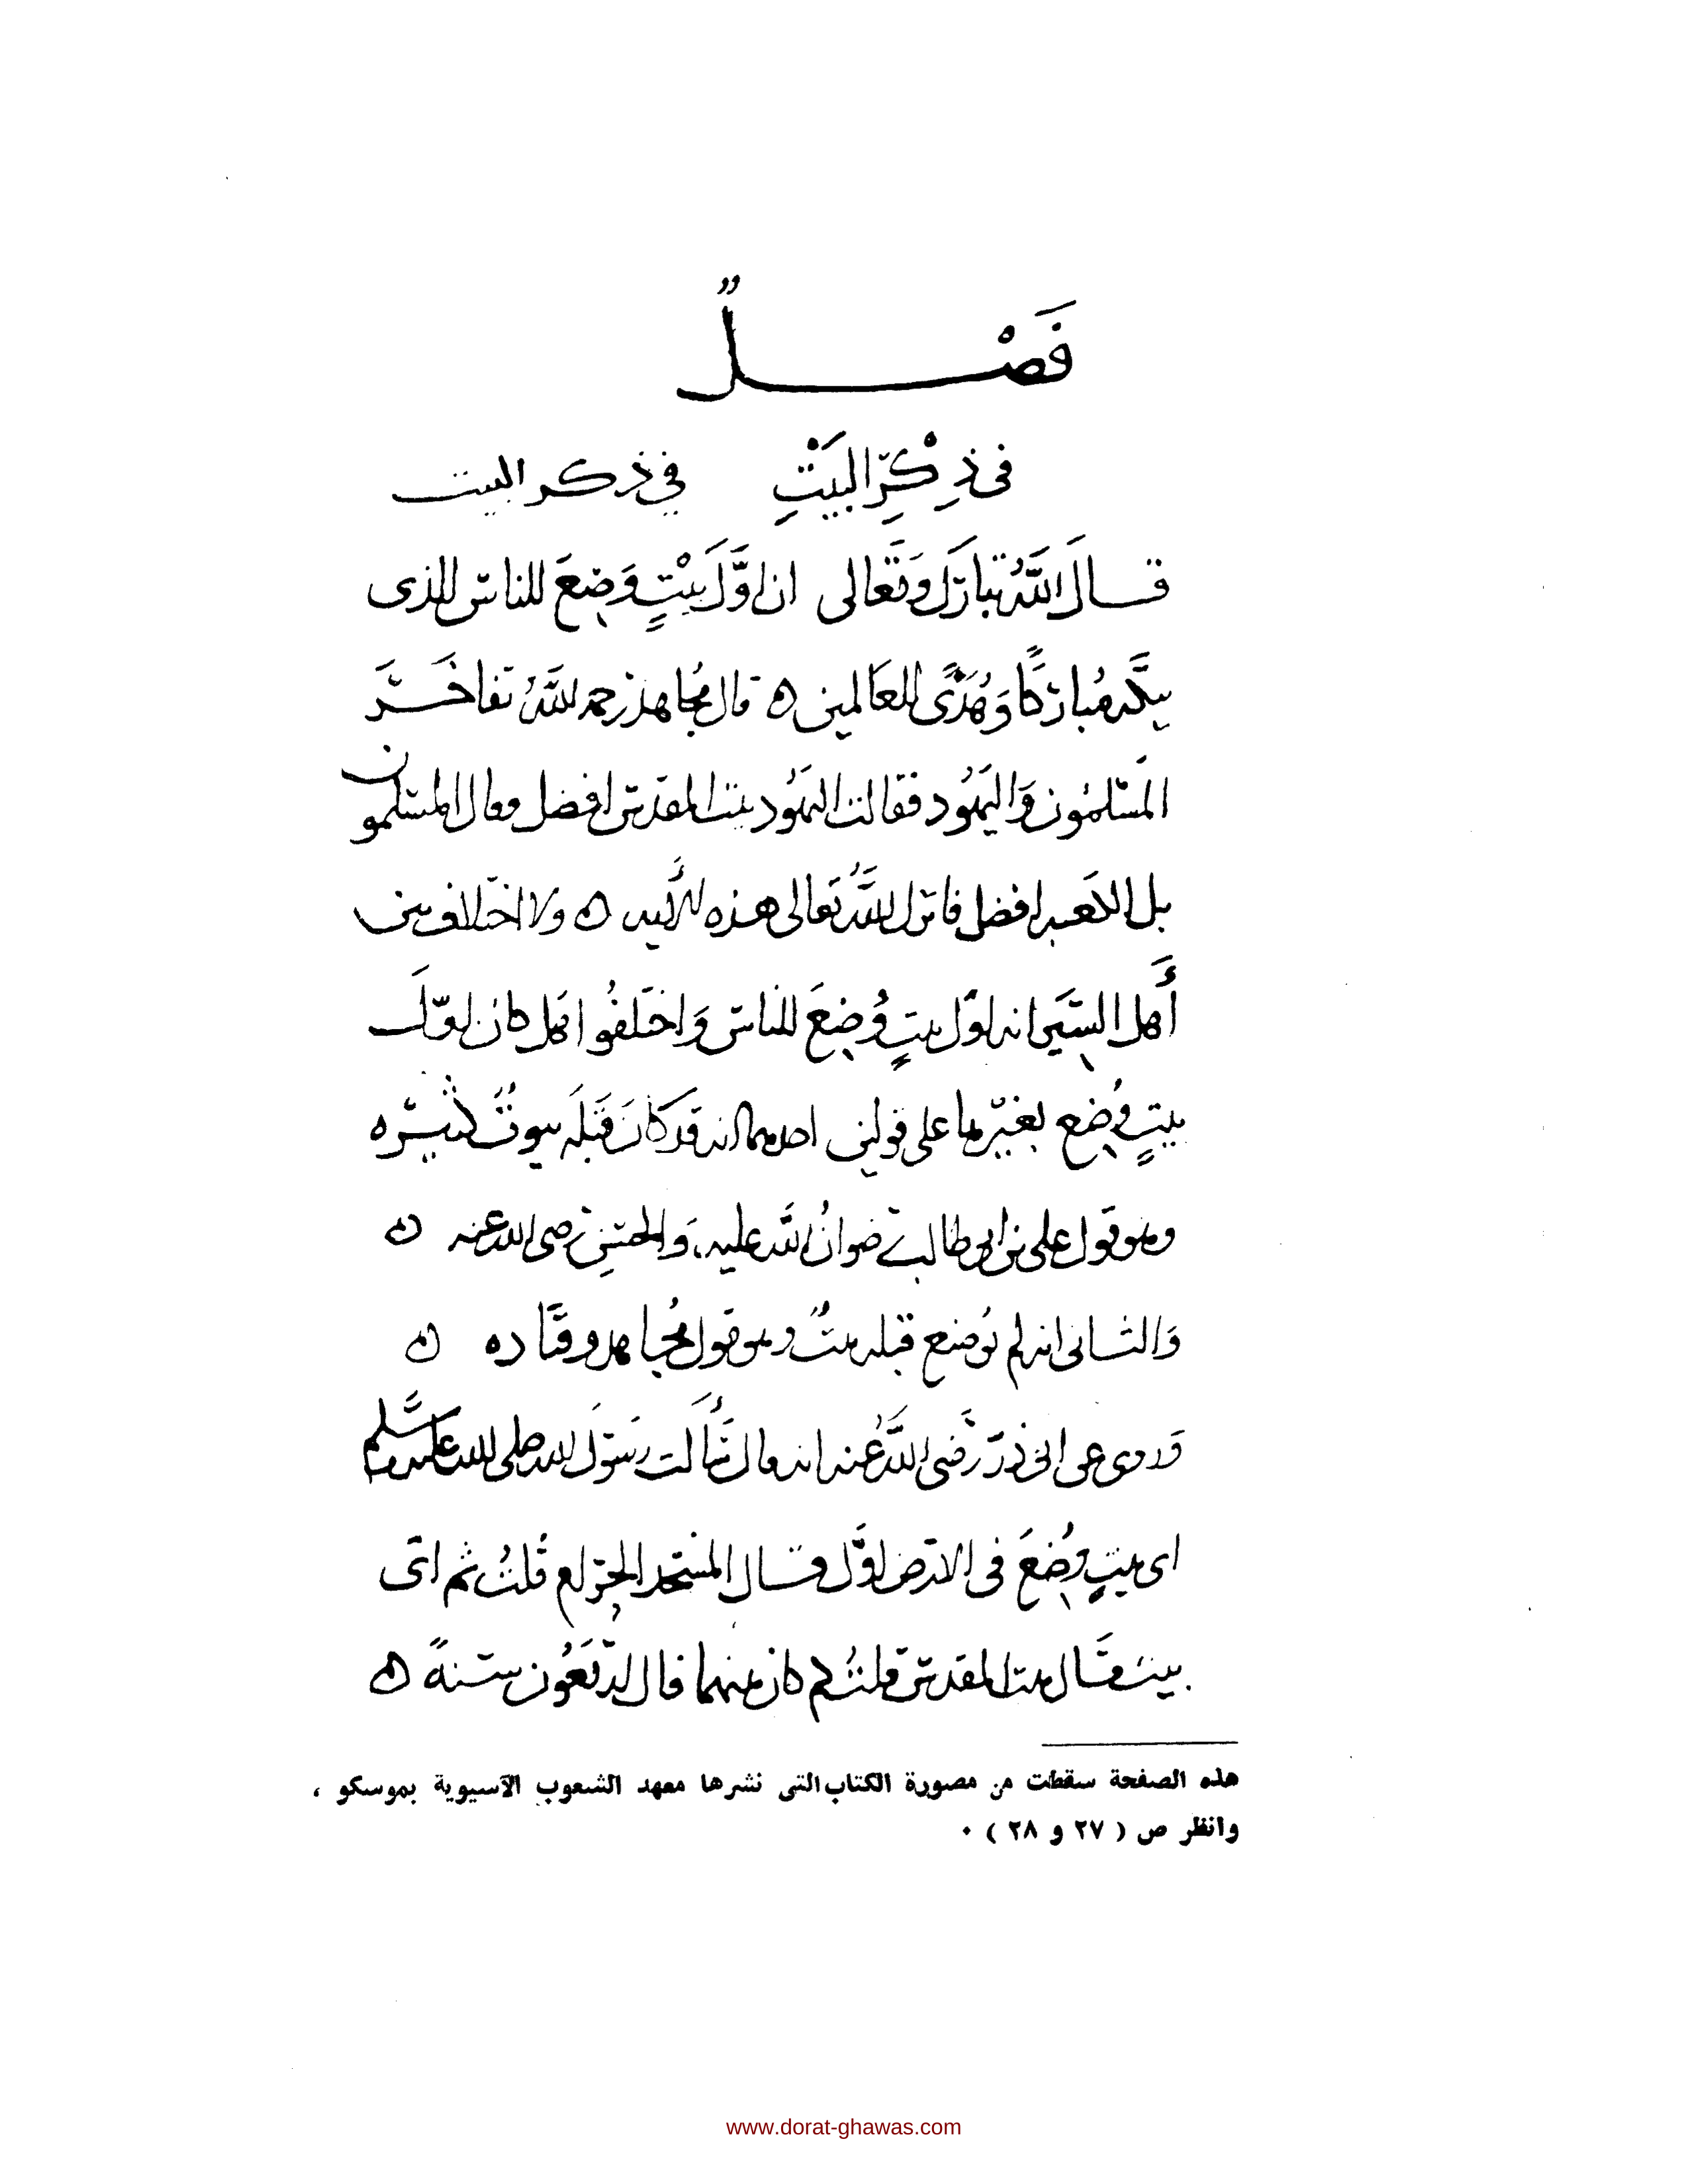 فَصْلٌ
فى ذِكْرِ البَيْتِ فى ذكر البيت
قال اللَّهُ تبارَكَ وَتَعَالى ان اوَّلَ بَيْتٍ وضِعَ للناس للذى
ببكَّه مُبارَكًا وَهُدًى للعَالمين ه قال مُجاهد رحمه اللَّهُ تفاخَرَ
المسْلمُون وَاليَهُود فقالت اليَهُود بيت المقدس افضل وقال المسلمون
بل الكعبه افضل فانزل اللَّهُ تَعَالى هذه الأيه ه ولا اختلاف بين
أَهل السِّيَر انه اول بيتٍ وُضِعَ للناس وَاختَلفُوا هَل كان اوّلَ
بيتٍ وُضِع بغيرها على قولين احدهما انه قد كَانَ قَبلَه بيوتٌ كثيره
وهو قول على بن ابى طالب رضوانُ اللَّه عليه، وَالحسنِ رضى الله عنه ه
وَالثانى انه لم يُوضع قبله بيتٌ وهو قول مُجاهد وقتَاده ه
وَروى عن ابى ذرّ رَضى اللَّهُ عنه انه قال سَأَلت رسَول الله صلى الله عليه وسَلم
اى بيتٍ وُضِعَ فى الارض اوَّل قال المسجد الحرام قُلتُ ثم اى
بيت قَال بيت المقدس قلتُ كم كان بينهما قال اربَعُون سنةً ه
هذه الصفحة سقطت من مصورة الكتاب التى نشرها معهد الشعوب الآسيوية بموسكو ،
وانظر ص ( ٢٧ و ٢٨ ) ٠
www.dorat-ghawas.com